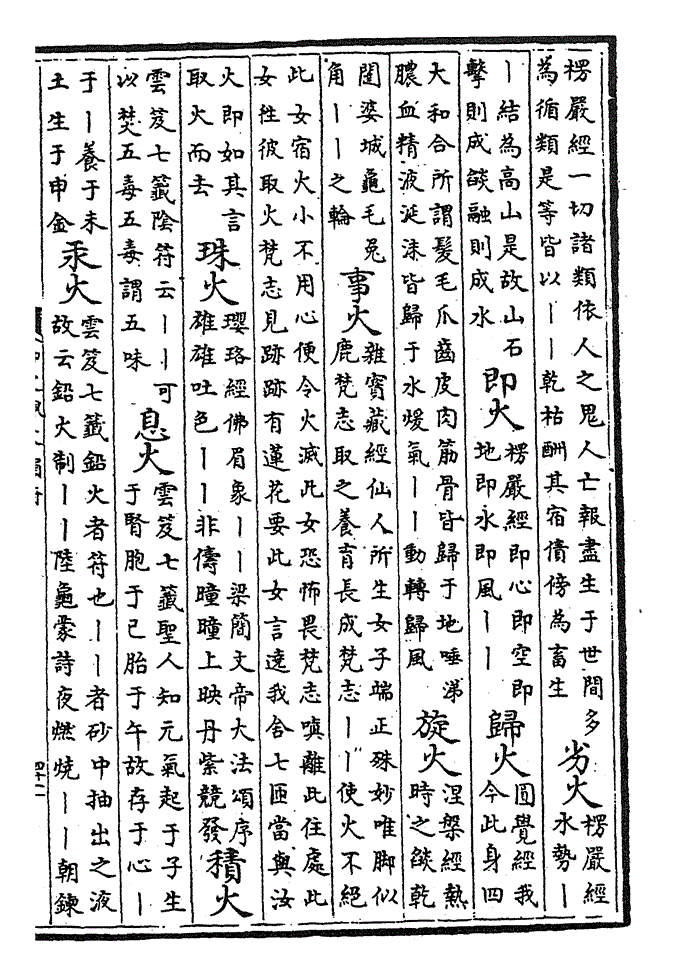 楞嚴經一切諸類依人之鬼人亡報盡生于世間多
為循類是等皆以丨丨乾枯酬其宿債傍為畜生
劣火
楞嚴經
水勢丨
丨結為高山是故山石
擊則成燄融則成水
即火
楞嚴經即心即空即
地即水即風丨丨
歸火
圓覺經我
今此身四
大和合所謂髮毛爪齒皮肉筋骨皆歸于地唾涕
膿血精液涎沫皆歸于水煖氣丨丨動轉歸風
旋火
涅槃經熱
時之燄乾
闥婆城龜毛兎
角丨丨之輪
事火
雜寶藏經仙人所生女子端正殊妙唯脚似
鹿梵志取之養育長成梵志丨丨使火不絕
此女宿火小不用心便令火滅此女恐怖畏梵志嗔離此住處此
女往彼取火梵志見跡跡有蓮花要此女言遶我舍七匝當與汝
火即如其言
取火而去
珠火
瓔珞經佛眉象丨丨梁簡文帝大法頌序
雄雄吐色丨丨非儔曈曈上映丹紫競發
積火
雲笈七籤陰符云丨丨可
以焚五毒五毒謂五味
息火
雲笈七籤聖人知元氣起于子生
于腎胞于已胎于午故存于心丨
于丨養于未
土生于申金
汞火
雲笈七籤鉛火者符也丨丨者砂中抽出之液
故云鉛火制丨丨陸龜蒙詩夜燃燒丨丨朝鍊